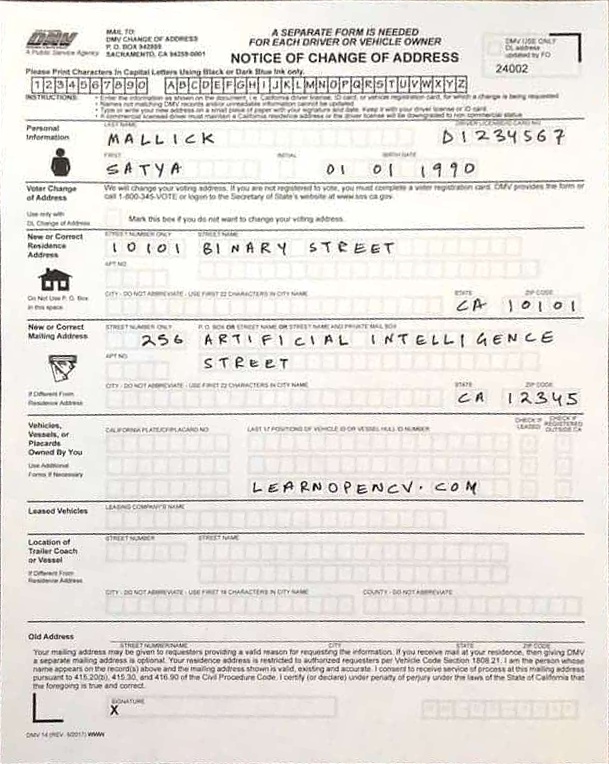 DMV
A Public Service Agency
MAIL TO:
DMV CHANGE OF ADDRESS
P. O. BOX 942859
SACRAMENTO, CA 94259-0001
A SEPARATE FORM IS NEEDED
FOR EACH DRIVER OR VEHICLE OWNER
NOTICE OF CHANGE OF ADDRESS
DMV USE ONLY
DL address
updated by FO
24002
Please Print Characters In Capital Letters Using Black or Dark Blue Ink only.
1 2 3 4 5 6 7 8 9 0 A B C D E F G H I J K L M N O P Q R S T U V W X Y Z
INSTRUCTIONS:
• Names not matching DMV records and/or unreadable information cannot be updated.
• Type or write your new address on a small piece of paper with your signature and date. Keep it with your driver license or ID card.
Personal
Information
LAST NAME
DRIVER LICENSE/ID CARD NO.
MALLICK D1234567
FIRST INITIAL BIRTH DATE
SATYA 01 01 1990
Voter Change
of Address
We will change your voting address. If you are not registered to vote, you must complete a voter registration card. DMV provides the form or
call 1-800-345-VOTE or logon to the Secretary of State's website at www.sos.ca.gov.
Use only with
DL Change of Address
Mark this box if you do not want to change your voting address.
New or Correct
Residence
Address
STREET NUMBER ONLY STREET NAME
10101 BINARY STREET
APT NO.
Do Not Use P. O. Box
in this space
CITY - DO NOT ABBREVIATE - USE FIRST 22 CHARACTERS IN CITY NAME STATE ZIP CODE
CA 10101
New or Correct
Mailing Address
STREET NUMBER ONLY P. O. BOX OR STREET NAME OR STREET NAME AND PRIVATE MAIL BOX
256 ARTIFICIAL INTELLIGENCE
APT NO.
STREET
If Different From
Residence Address
CITY - DO NOT ABBREVIATE - USE FIRST 22 CHARACTERS IN CITY NAME STATE ZIP CODE
CA 12345
Vehicles,
Vessels, or
Placards
Owned By You
Use Additional
Forms If Necessary
CALIFORNIA PLATE/CF/PLACARD NO. LAST 17 POSITIONS OF VEHICLE ID OR VESSEL HULL ID NUMBER
CHECK IF
LEASED
CHECK IF
REGISTERED
OUTSIDE CA
LEARNOPENCV.COM
Leased Vehicles
LEASING COMPANY'S NAME
Location of
Trailer Coach
or Vessel
If Different From
Residence Address
STREET NUMBER STREET NAME
CITY - DO NOT ABBREVIATE - USE FIRST 18 CHARACTERS IN CITY NAME COUNTY - DO NOT ABBREVIATE
Old Address
STREET NUMBER/NAME CITY STATE ZIP CODE
Your mailing address may be given to requesters providing a valid reason for requesting the information. If you receive mail at your residence, then giving DMV
a separate mailing address is optional. Your residence address is restricted to authorized requesters per Vehicle Code Section 1808.21. I am the person whose
name appears on the record(s) above and the mailing address shown is valid, existing and accurate. I consent to receive service of process at this mailing address
pursuant to 415.20(b), 415.30, and 416.90 of the Civil Procedure Code. I certify (or declare) under penalty of perjury under the laws of the State of California that
the foregoing is true and correct.
SIGNATURE
X
DMV 14 (REV. 6/2017) WWW